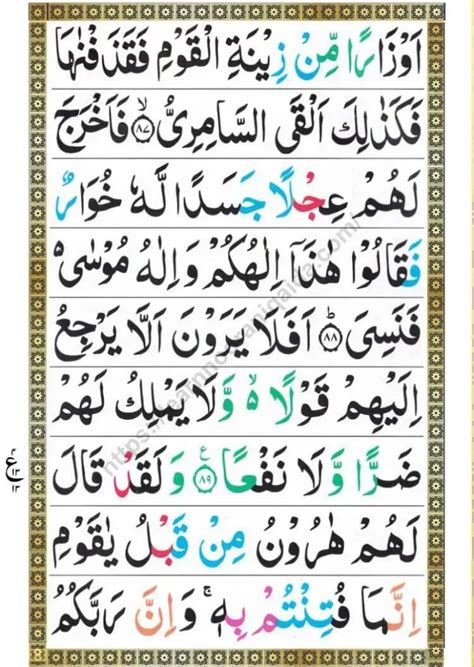 اَوْزَارًا مِّنْ زِيْنَةِ الْقَوْمِ فَقَذَفْنٰهَا
فَكَذٰلِكَ اَلْقَى السَّامِرِىُّ ۙ‏﴿۸۷﴾ فَاَخْرَجَ
لَهُمْ عِجْلًا جَسَدًا لَّهٗ خُوَارٌ
فَقَالُوْا هٰذَاۤ اِلٰهُكُمْ وَاِلٰهُ مُوْسٰى ۥ
فَنَسِىَ ؕ‏﴿۸۸﴾ اَفَلَا يَرَوْنَ اَلَّا يَرْجِعُ
اِلَيْهِمْ قَوْلًا ۙ۬ وَّلَا يَمْلِكُ لَهُمْ
ضَرًّا وَّلَا نَفْعًا ‏﴿۸۹﴾ ع وَلَقَدْ قَالَ
لَهُمْ هٰرُوْنُ مِنْ قَبْلُ يٰقَوْمِ
اِنَّمَا فُتِنْتُمْ بِهٖ ۚ وَاِنَّ رَبَّكُمُ